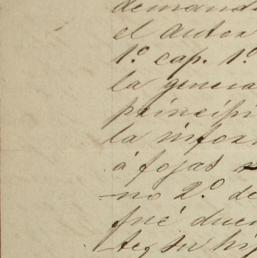 demand
el autor
1º cap. 1º
la genera
principi
la infor
á fojas
no 2º de
fué due
su hi